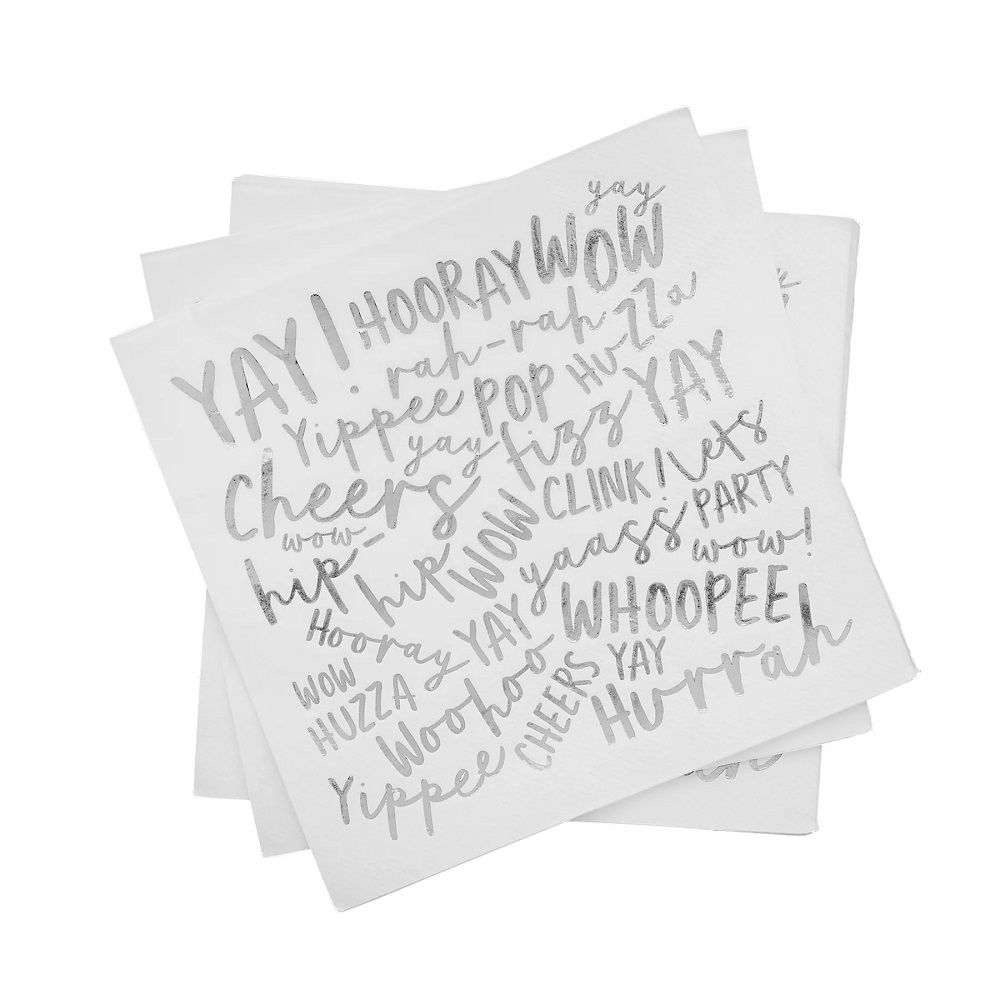 yay
YAY! HOORAY WOW
rah-rah HUZZa
Yippee POP
yay fizz YAY
Cheers CLINK! Lets
wow PARTY
hip-hip WOW yaass wow!
Hooray YAY WHOOPEE!
WOW Woohoo CHEERS YAY
HUZZA Hurrah
Yippee